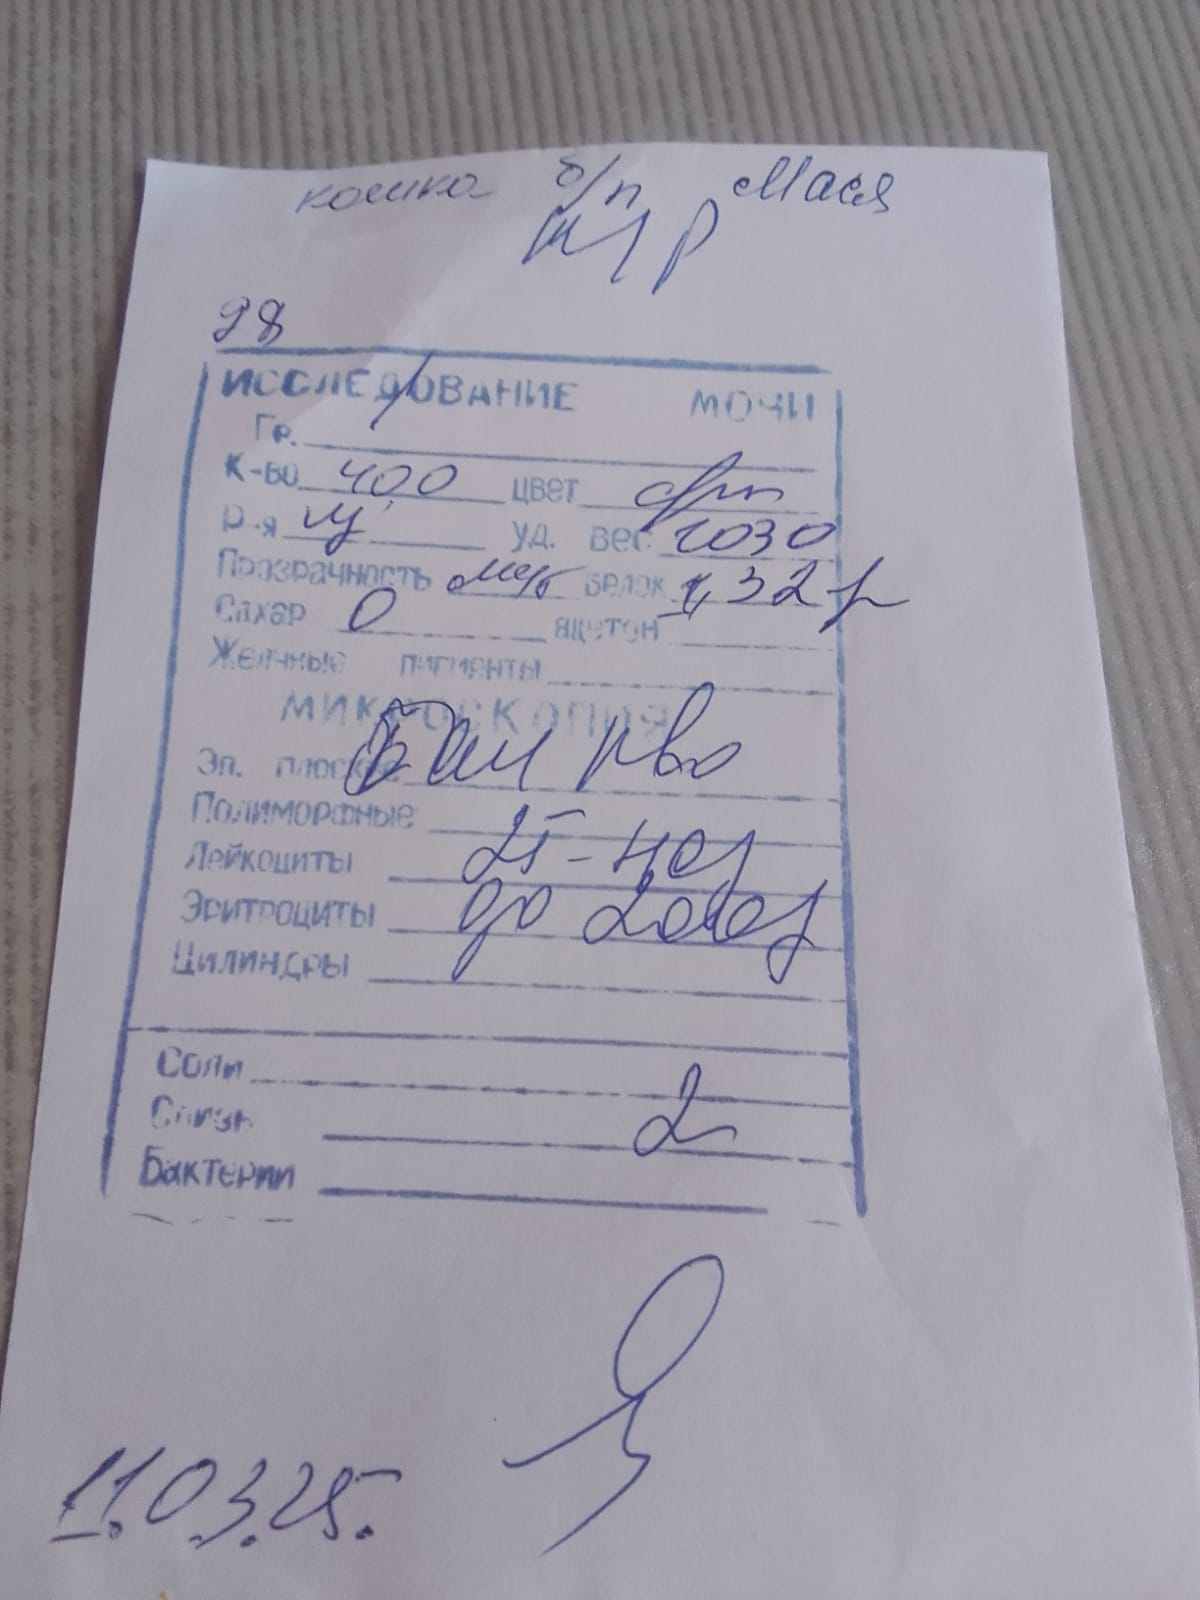 кошка б/п Мася
к/р
98
ИССЛЕДОВАНИЕ МОЧИ
Гр.
К-во 40,0 цвет
Р-я щ уд. вес 1030
Прозрачность мут белок 1,32
Сахар 0 ацетон
Желчные пигменты
МИКРОСКОПИЯ
Эп. плоское
Полиморфные
Лейкоциты 25-40
Эритроциты до 200
Цилиндры
Соли
Слизь 2
Бактерии
11.03.25.